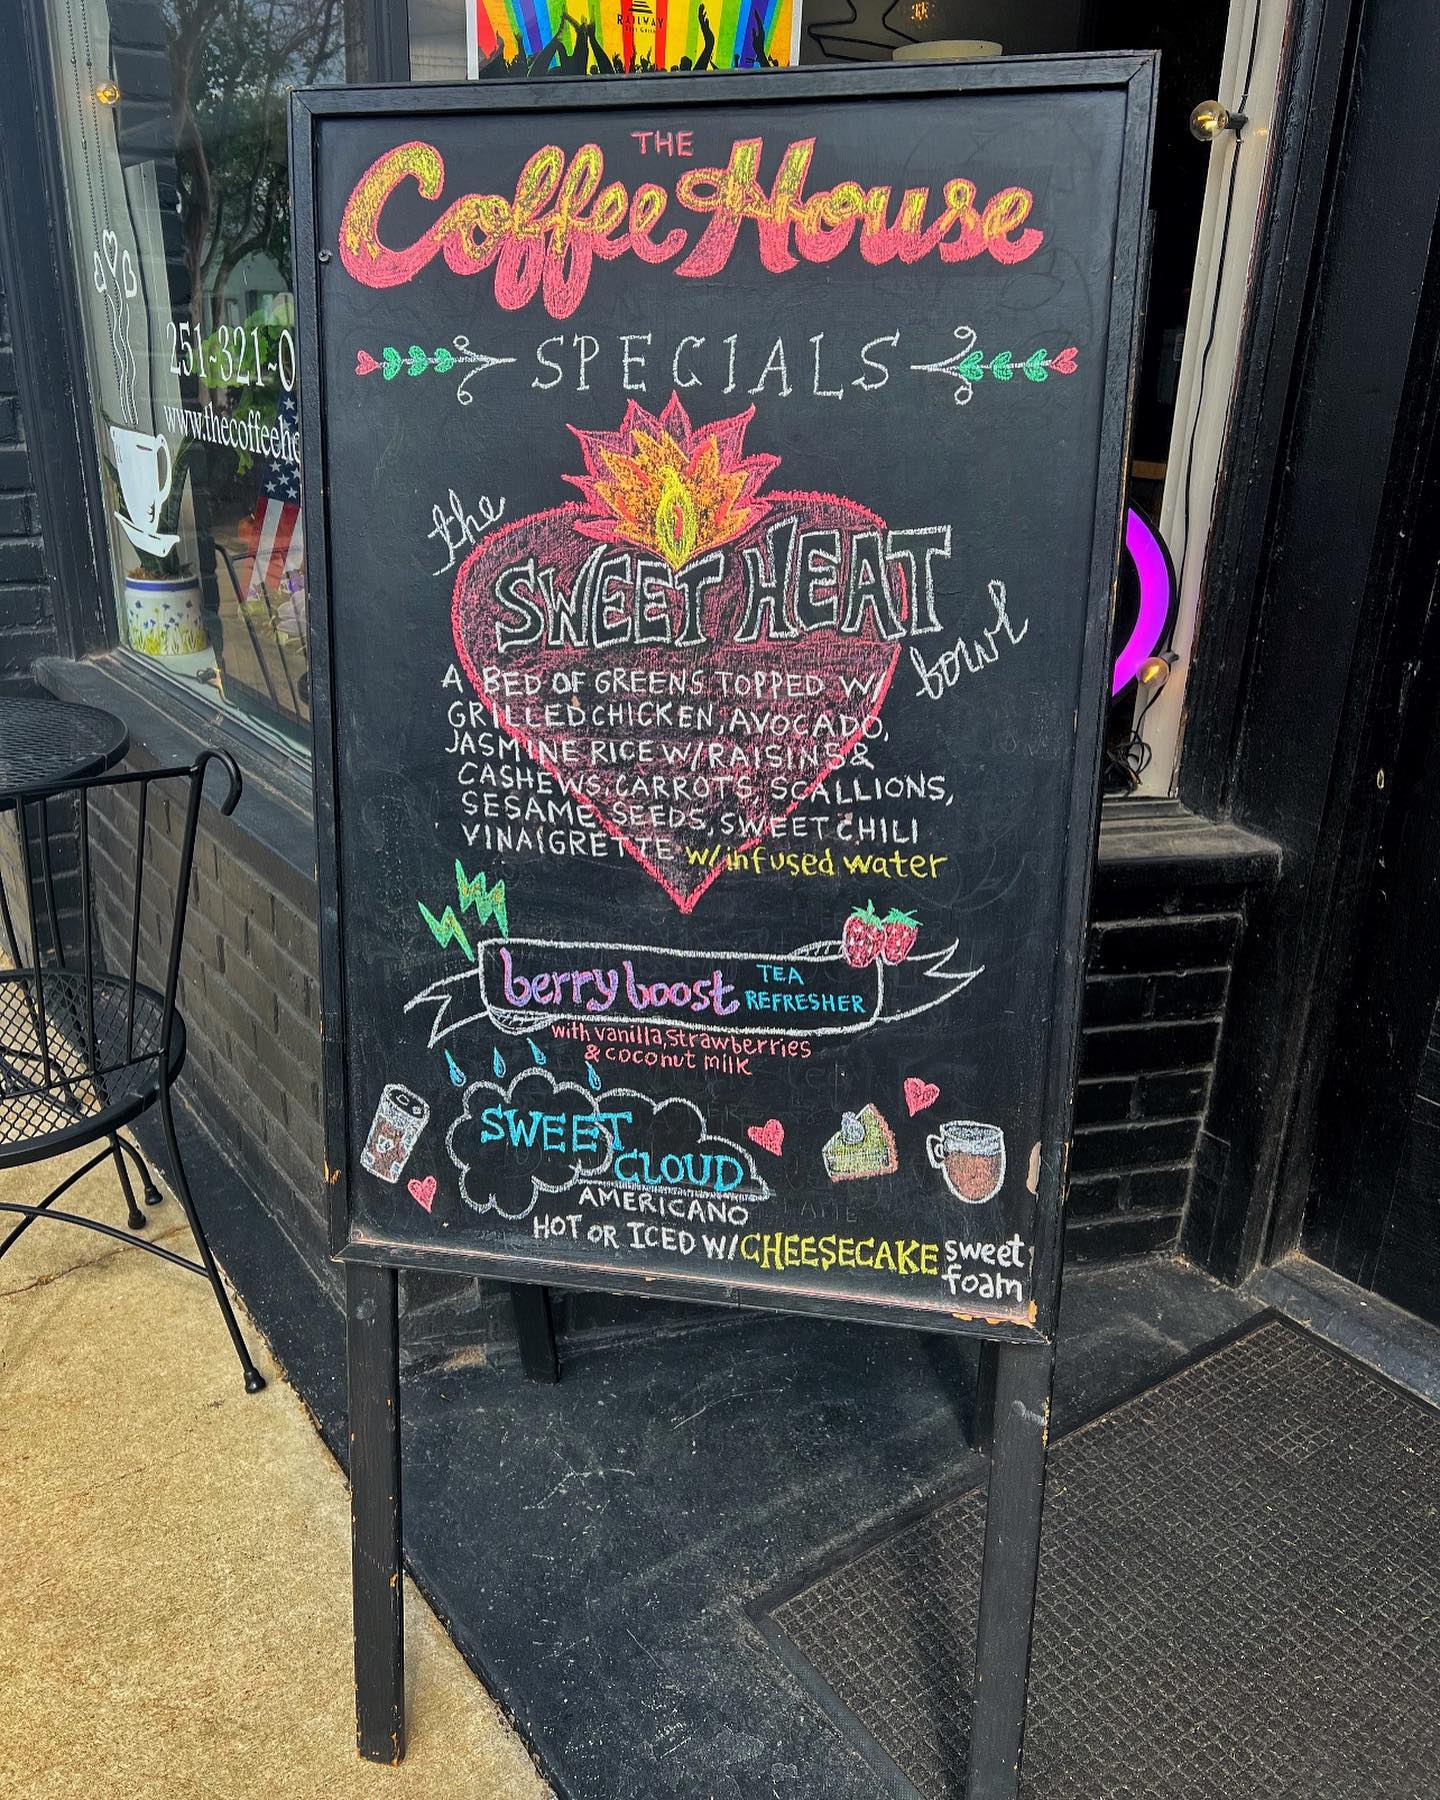 RAILWAY
THE
Coffee House
SPECIALS
251-321-0
www.thecoffeeho
the
SWEET HEAT
bowl
A BED OF GREENS TOPPED W/
GRILLED CHICKEN, AVOCADO,
JASMINE RICE W/ RAISINS &
CASHEWS, CARROTS, SCALLIONS,
SESAME SEEDS, SWEET CHILI
VINAIGRETTE w/ infused water
berry boost TEA
REFRESHER
with vanilla, strawberries
& coconut milk
SWEET
CLOUD
AMERICANO
HOT OR ICED W/ CHEESECAKE sweet
foam